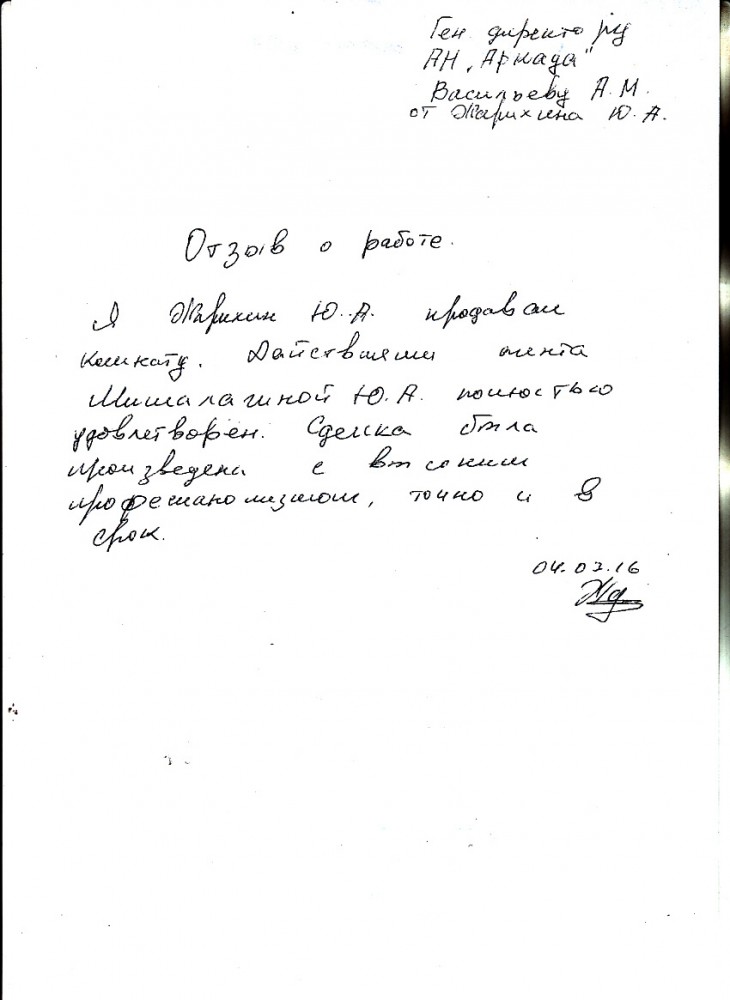 Ген. директору
АН "Аркада"
Васильеву А.М.
от Жарихина Ю.А.
Отзыв о работе.
Я Жарихин Ю.А. продавал
комнату. Действиями агента
Мишалагиной Ю.А. полностью
удовлетворён. Сделка была
произведена с высоким
профессионализмом, точно и в
срок.
04.02.16